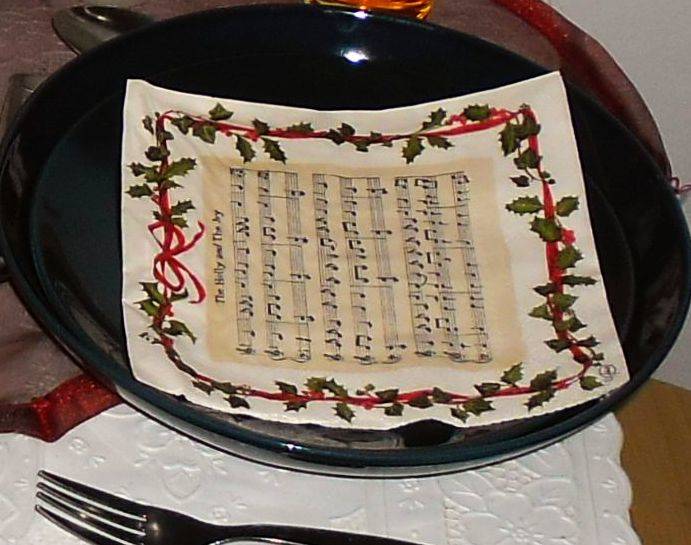 The Holly and The Ivy